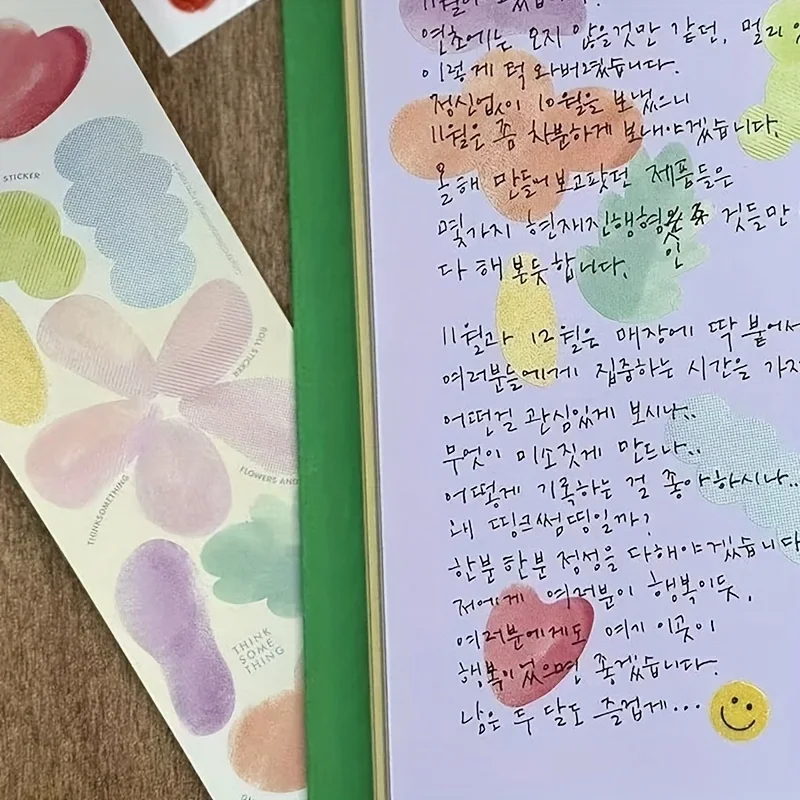 STICKER
ROLL STICKER
FLOWERS AND
THINKSOMETHING
THINK
SOME
THING
11월이 왔습니다.
연초에는 오지 않을것만 같던, 멀리
이렇게 턱 와버렸습니다.
정신없이 10월을 보냈으니
11월은 좀 차분하게 보내야겠습니다.
올해 만들어보고팠던 제품들은
몇가지 현재진행형인 것들만
다 해본듯합니다.
11월과 12월은 매장에 딱 붙어서
여러분들에게 집중하는 시간을 가지
어떤걸 관심있게 보시나..
무엇이 미소짓게 만드나..
어떻게 기록하는 걸 좋아하시나..
왜 띵크썸띵일까?
한분 한분 정성을 다해야겠습니다
저에게 여러분이 행복이듯,
여러분에게도 여기 이곳이
행복이었으면 좋겠습니다.
남은 두 달도 즐겁게...